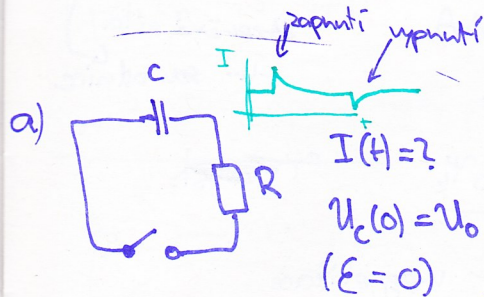 zapnutí
vypnutí
I
t
a)
C
R
I(t)=?
U_c(0)=U_0
(ε=0)